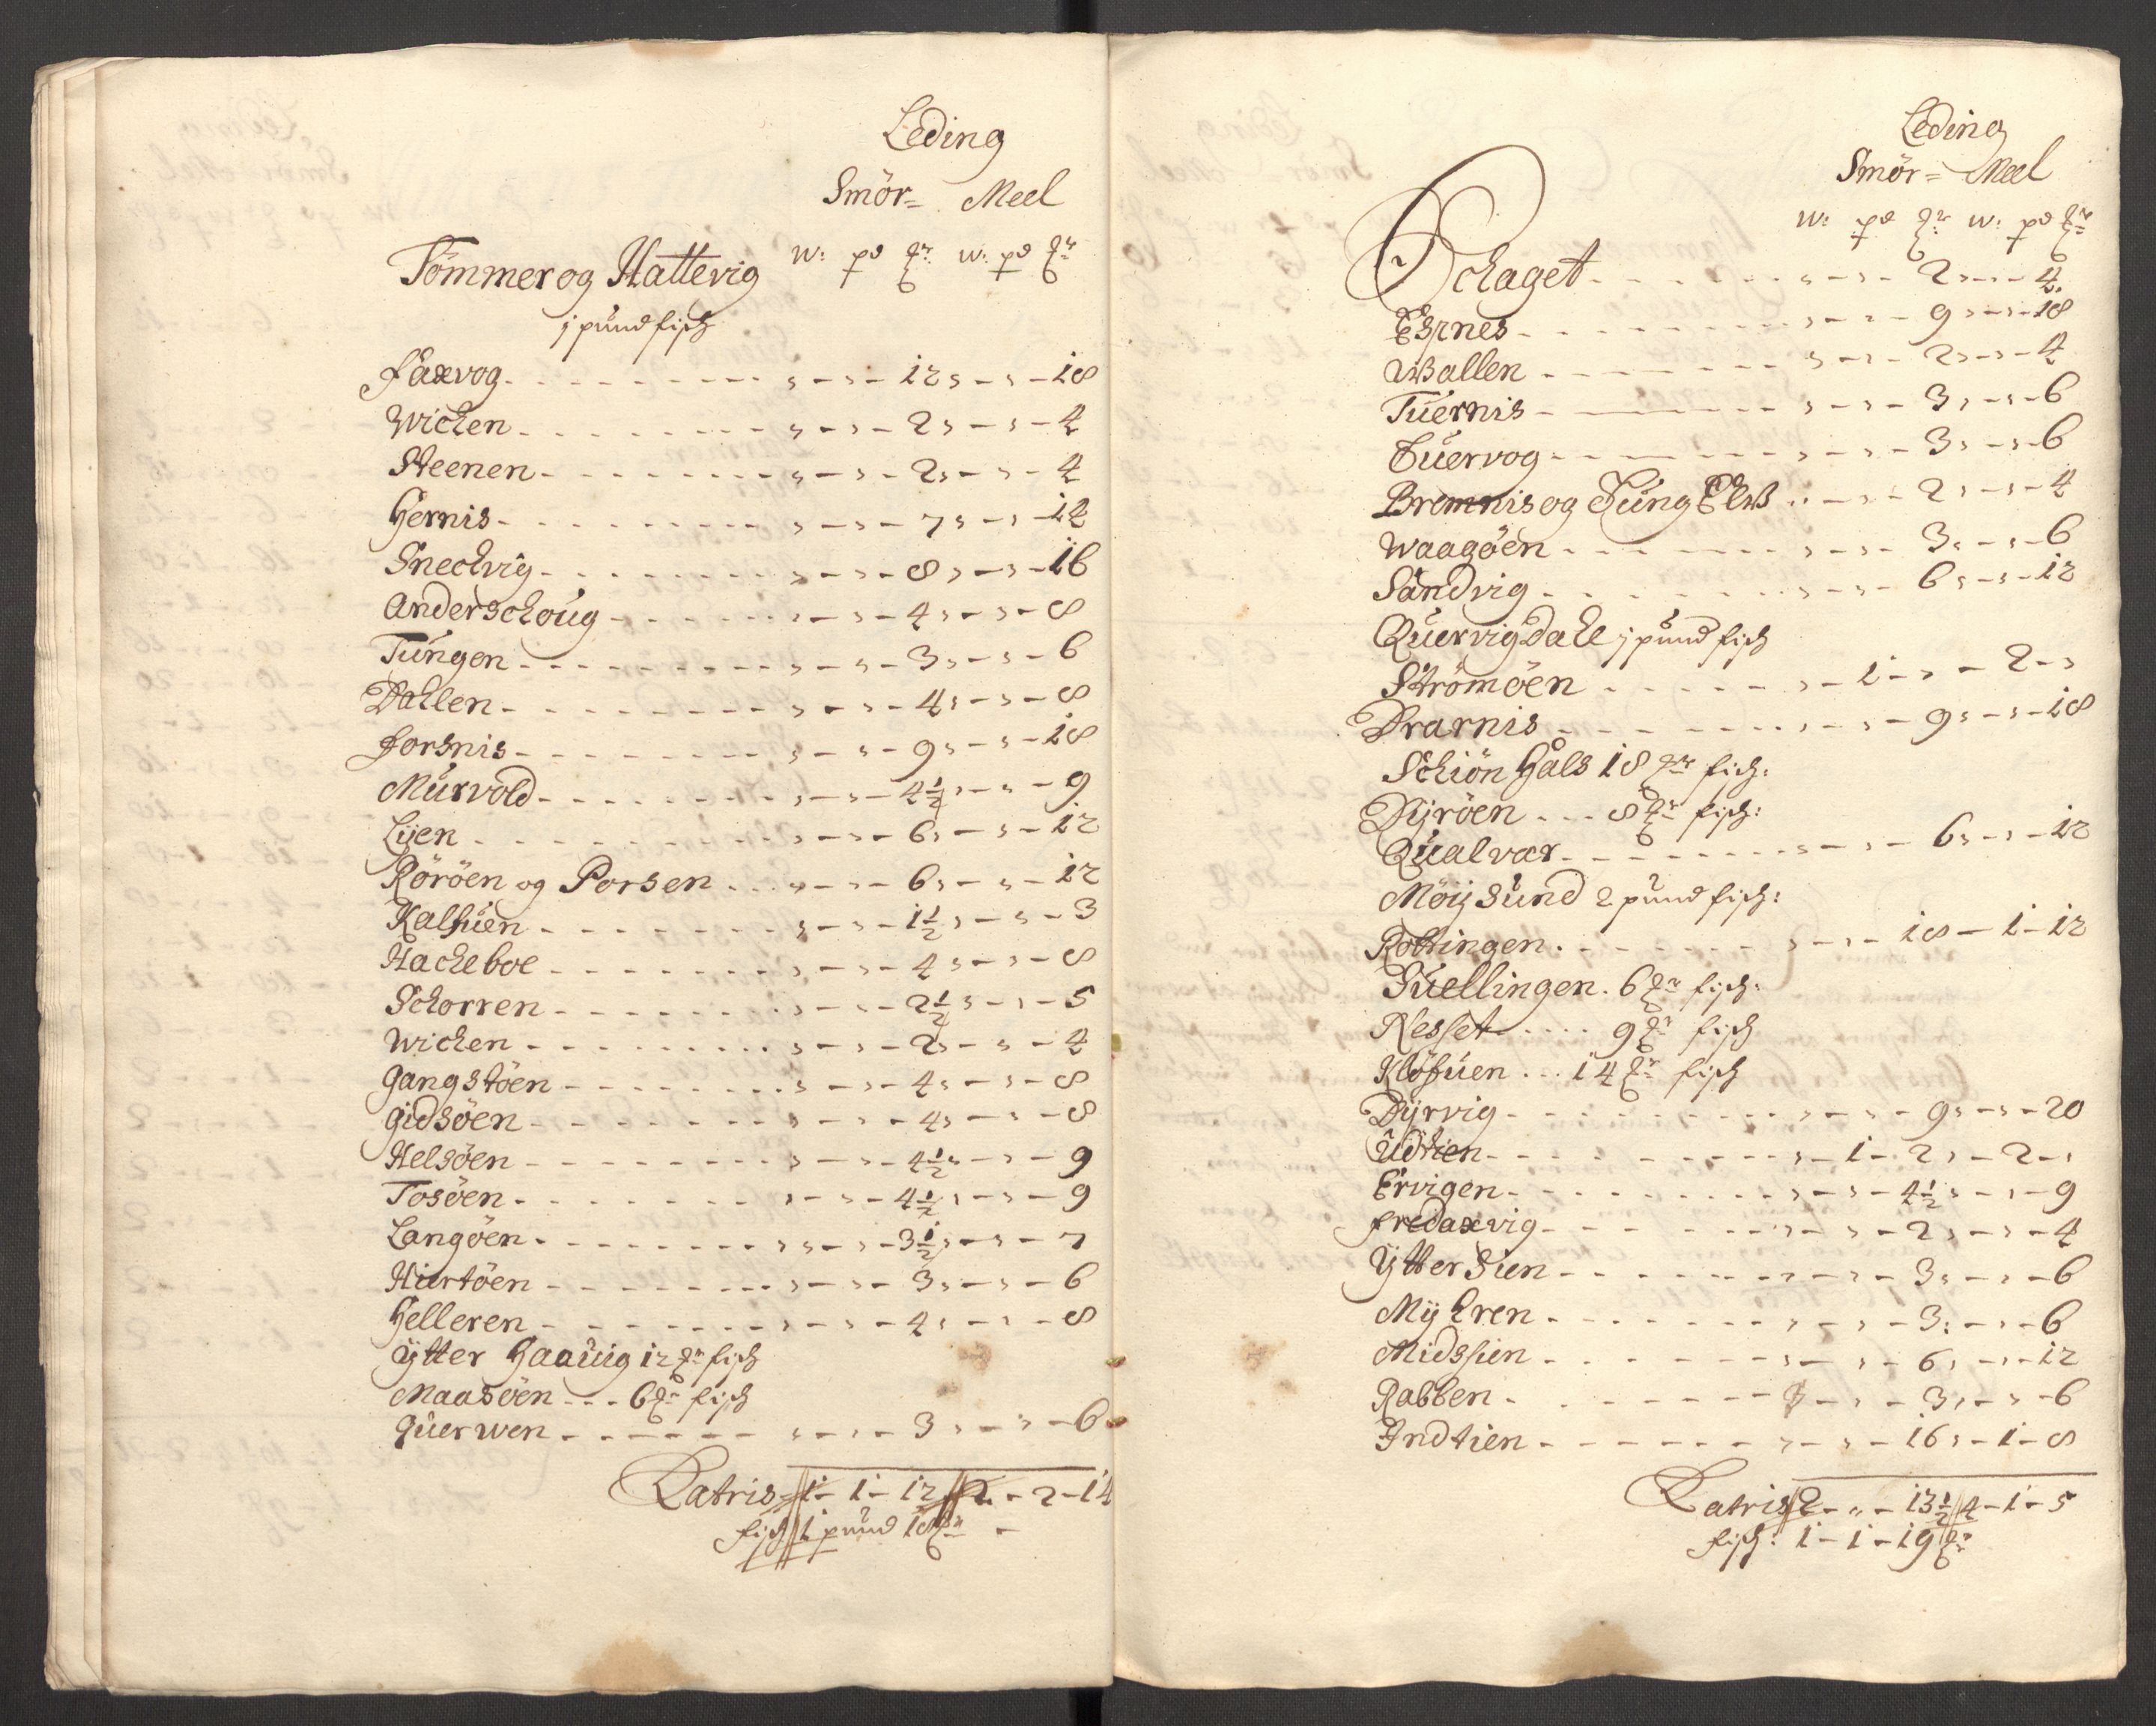 Leding
Smör= Meel
Tömmer og Hattevig w: pd ℔r w: pd ℔r
j pund fisch
Faxvog - - - - - - - - - „ - „ - 12 „ - „ - 18
Wichen - - - - - - - - - „ - „ - 2 „ - „ - 4
Steenen - - - - - - - - - „ - „ - 2 „ - „ - 4
Hernis - - - - - - - - - „ - „ - 7 „ - „ - 14
Snechvig - - - - - - - - - „ - „ - 8 „ - „ - 16
Anderschoug - - - - - - „ - „ - 4 „ - „ - 8
Tungen - - - - - - - - - „ - „ - 3 „ - „ - 6
Dahlen - - - - - - - - - „ - „ - 4 „ - „ - 8
Forsnis - - - - - - - - - „ - „ - 9 „ - „ - 18
Murvold - - - - - - - - „ - „ - 4½ „ - „ - 9
Lijen - - - - - - - - - „ - „ - 6 „ - „ - 12
Röröen og Porsen - - - „ - „ - 6 „ - „ - 12
Kalhuen - - - - - - - - „ - „ - 1½ „ - „ - 3
Hacheboe - - - - - - - - „ - „ - 4 „ - „ - 8
Schorren - - - - - - - - „ - „ - 2½ „ - „ - 5
Wichen - - - - - - - - - „ - „ - 2 „ - „ - 4
Gangstöen - - - - - - - „ - „ - 4 „ - „ - 8
Gidsöen - - - - - - - - „ - „ - 4 „ - „ - 8
Helsöen - - - - - - - - „ - „ - 4½ „ - „ - 9
Tosöen - - - - - - - - „ - „ - 4½ „ - „ - 9
Langöen - - - - - - - - „ - „ - 3½ „ - „ - 7
Hiertöen - - - - - - - - „ - „ - 3 „ - „ - 6
Helleren - - - - - - - - „ - „ - 4 „ - „ - 8
Ÿtter Haavig 12 ℔r fisch
Maasöen - - - 6 ℔r fisch
Querwen - - - - - - „ - „ - 3 „ - „ - 6
Latris 1 - 1 - 12 // 2 - 2 - 14
fisch // 1 pund 18 ℔r -
Leding
Smör= Meel
w: pd ℔r w: pd ℔r
Schaget - - - - - - „ - „ - 2 „ - „ - 4
Espnes - - - - - - - - „ - „ - 9 „ - „ - 18
Wallen - - - - - - - „ - „ - 2 „ - „ - 4
Tuernis - - - - - - - „ - „ - 3 „ - „ - 6
Tuervog - - - - - - - „ - „ - 3 „ - „ - 6
Bremnis og Jung Elw - „ - „ - 2 „ - „ - 4
Waagöen - - - - - - - „ - „ - 3 „ - „ - 6
Sandvig - - - - - - - „ - „ - 6 „ - „ - 12
Quervigdahl j pund fisch
Strömöen - - - - - - „ - 1 - „ - 2 - „
Drarnis - - - - - - - „ - „ - 9 „ - „ - 18
Schiön Hals 18 ℔r fisch:
Dÿröen - - - 8 ℔r fisch:
Qualvær - - - - - - - „ - „ - 6 „ - „ - 12
Möysund 2 pund fisch:
Rottingen - - - - - - „ - „ - 18 - 1 - 12
Quellingen . 6 ℔r fisch:
Nesset - - - - 9 ℔r fisch
Klöfuen - - - 14 ℔r fisch
Dÿrvig - - - - - - - - „ - „ - 9 „ - „ - 20
Udtien - - - - - - - - „ - 1 - 2 „ - 2 - „
Ervigen - - - - - - - - „ - „ - 4½ „ - „ - 9
Fredaxvig - - - - - - - „ - „ - 2 „ - „ - 4
Ÿttersien - - - - - - - „ - „ - 3 „ - „ - 6
Mÿhren - - - - - - - - „ - „ - 3 „ - „ - 6
Midssien - - - - - - - „ - „ - 6 „ - „ - 12
Rabben - - - - - - - - „ - „ - 3 „ - „ - 6
Indtien - - - - - - - - „ - „ - 16 „ - 1 - 8
Latris 2 - „ - 13½ // 4 - 1 - 5
fisch: 1 - 1 - 19 ℔r